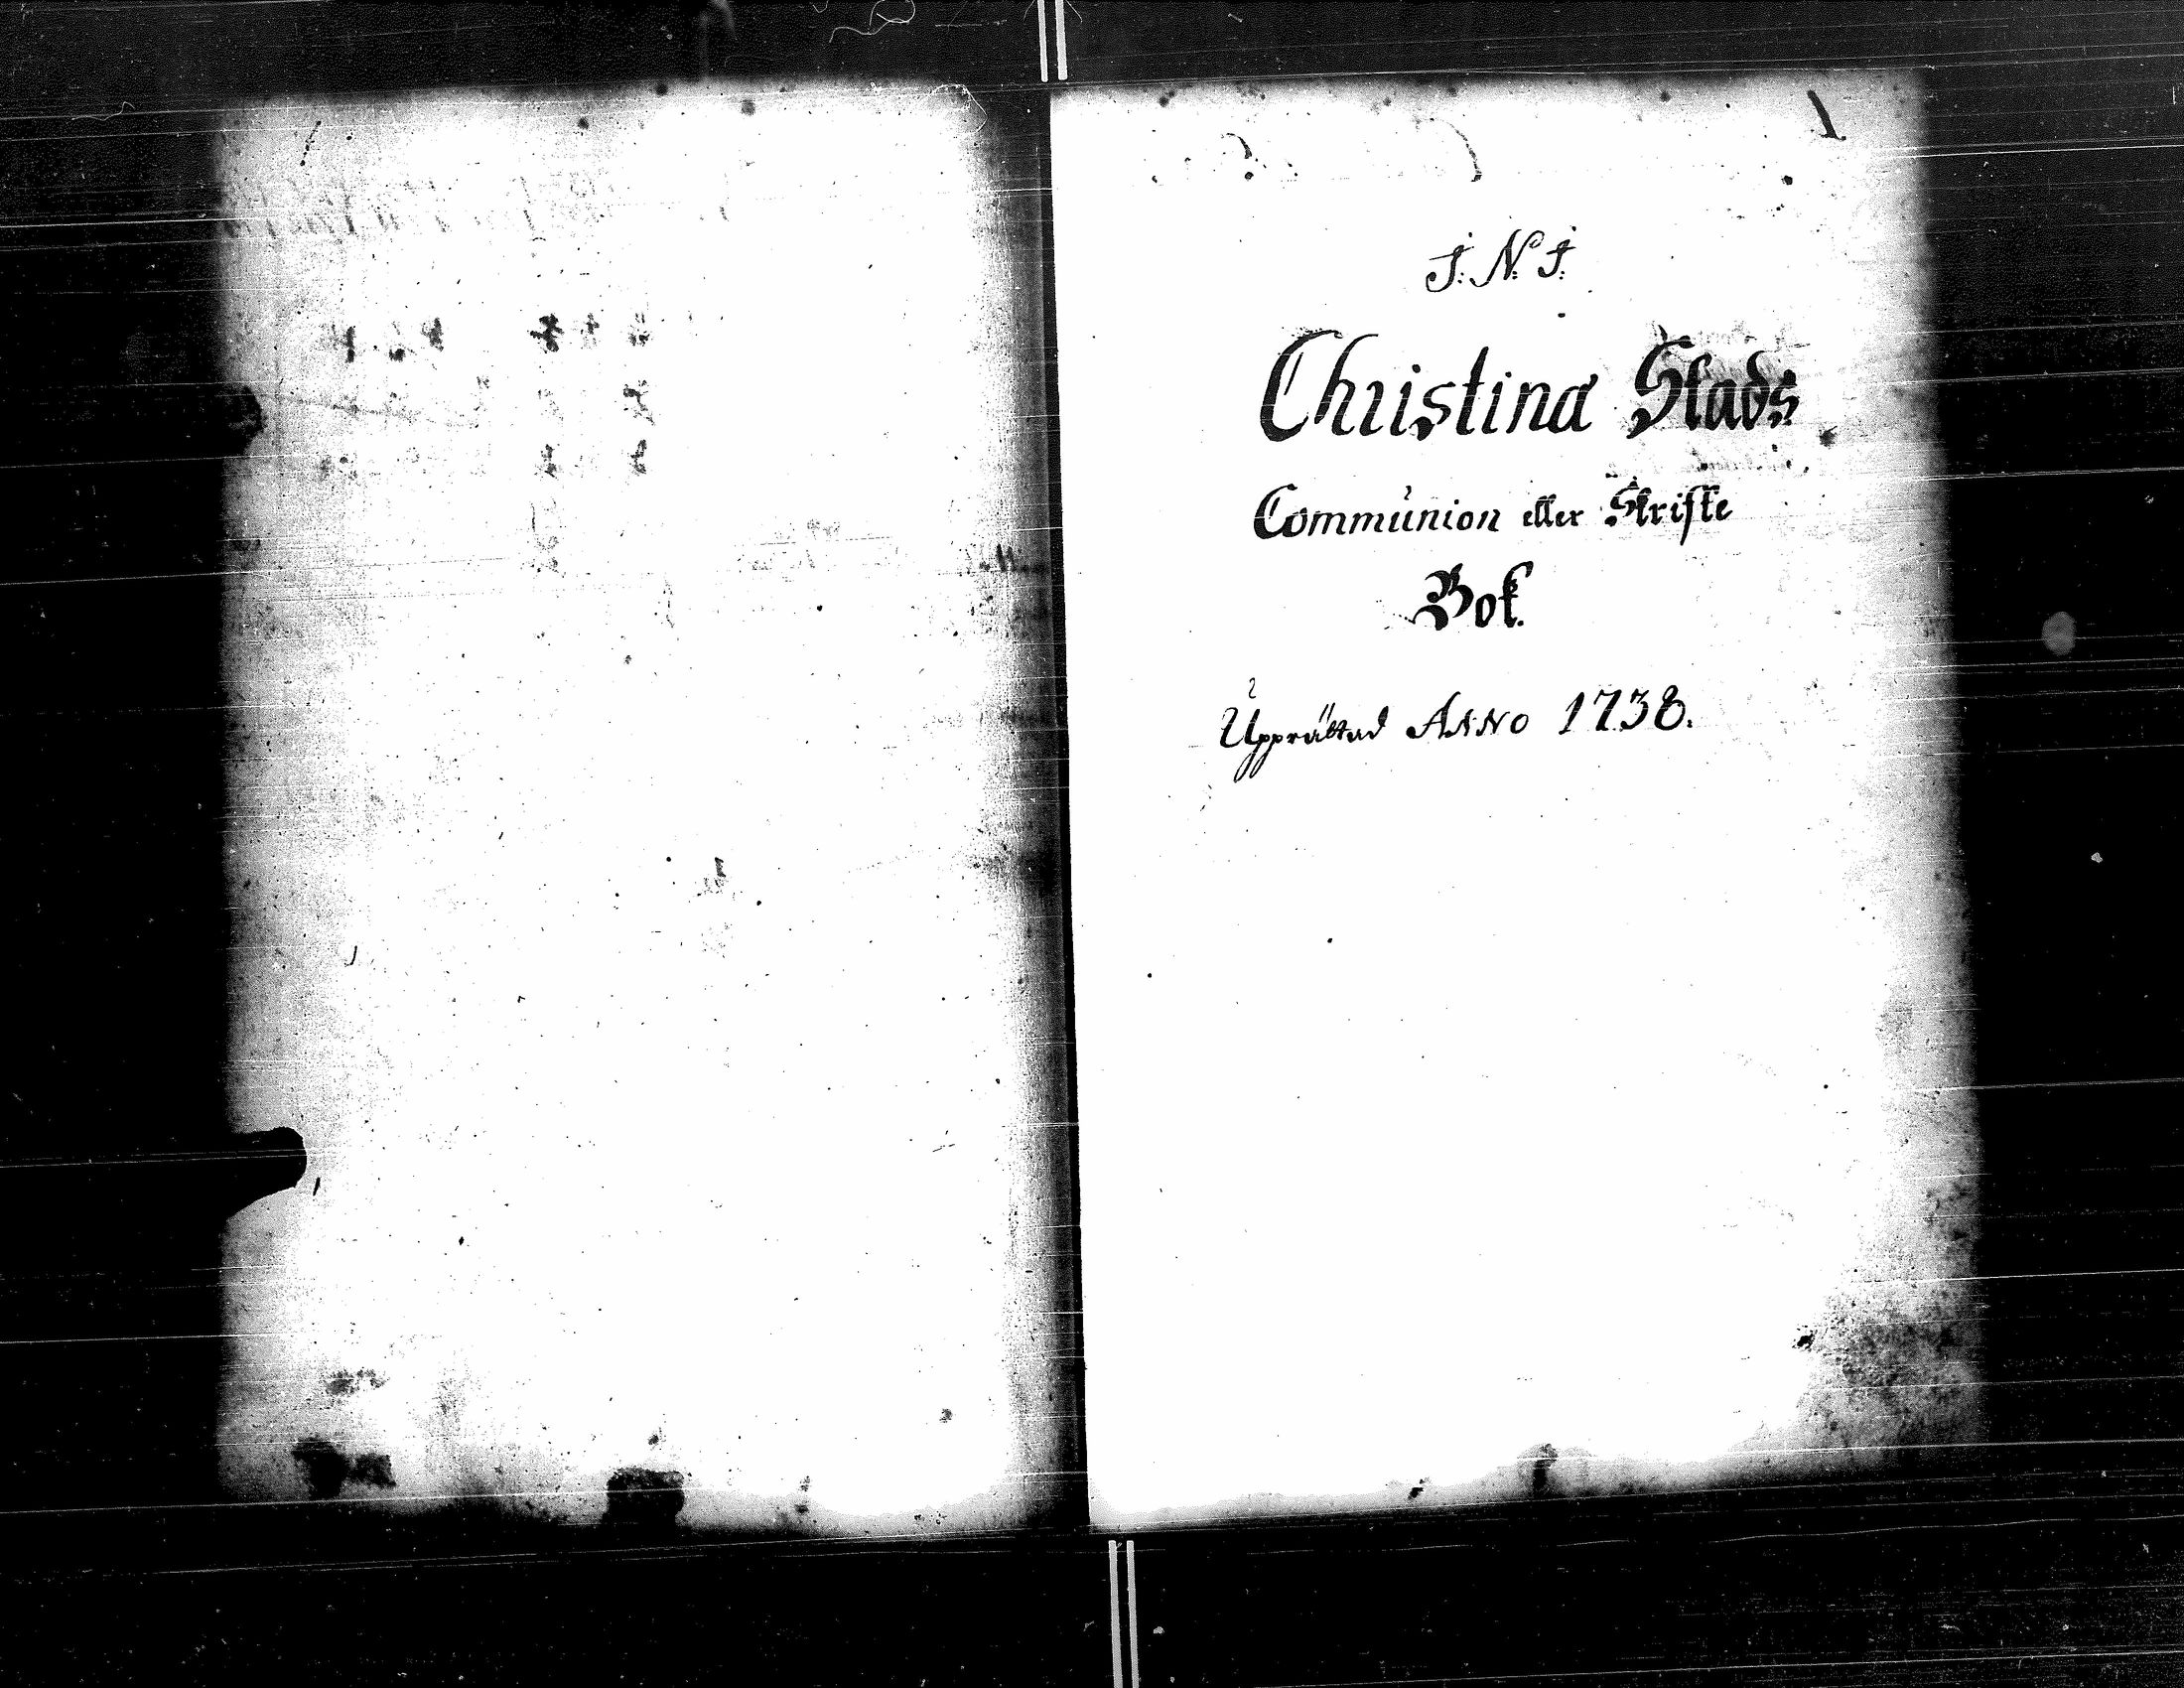 1
J. N. J.
Christinæ Stads
Communion eller Skrifte
Bok.
Upprättad ANNO 1738.